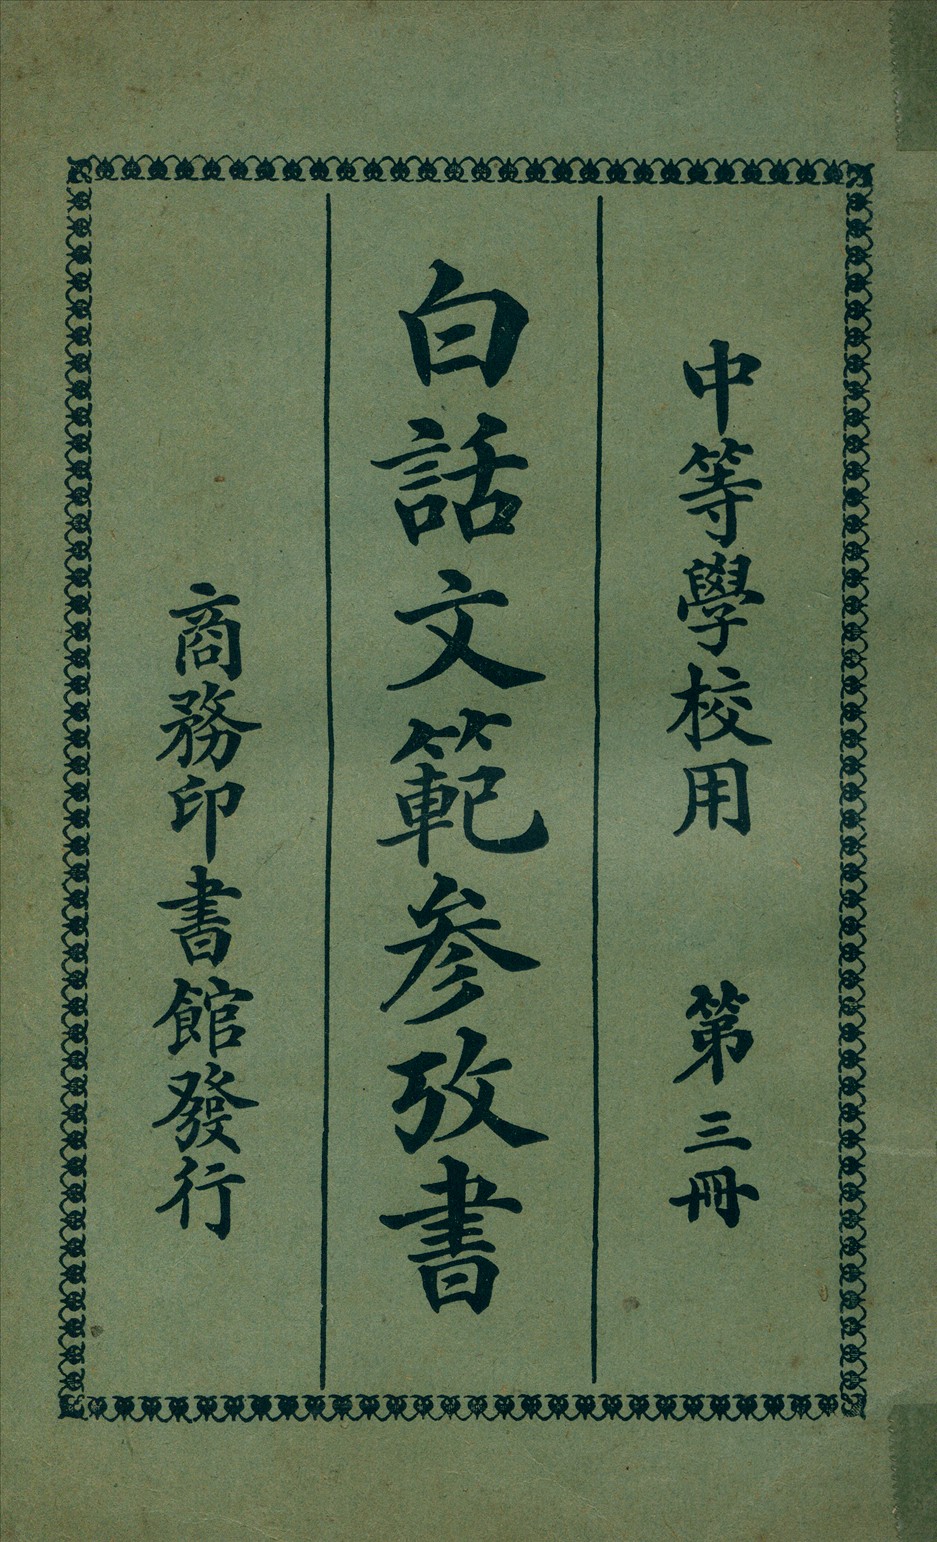 中等學校用 第三冊
白話文範參攷書
商務印書館發行